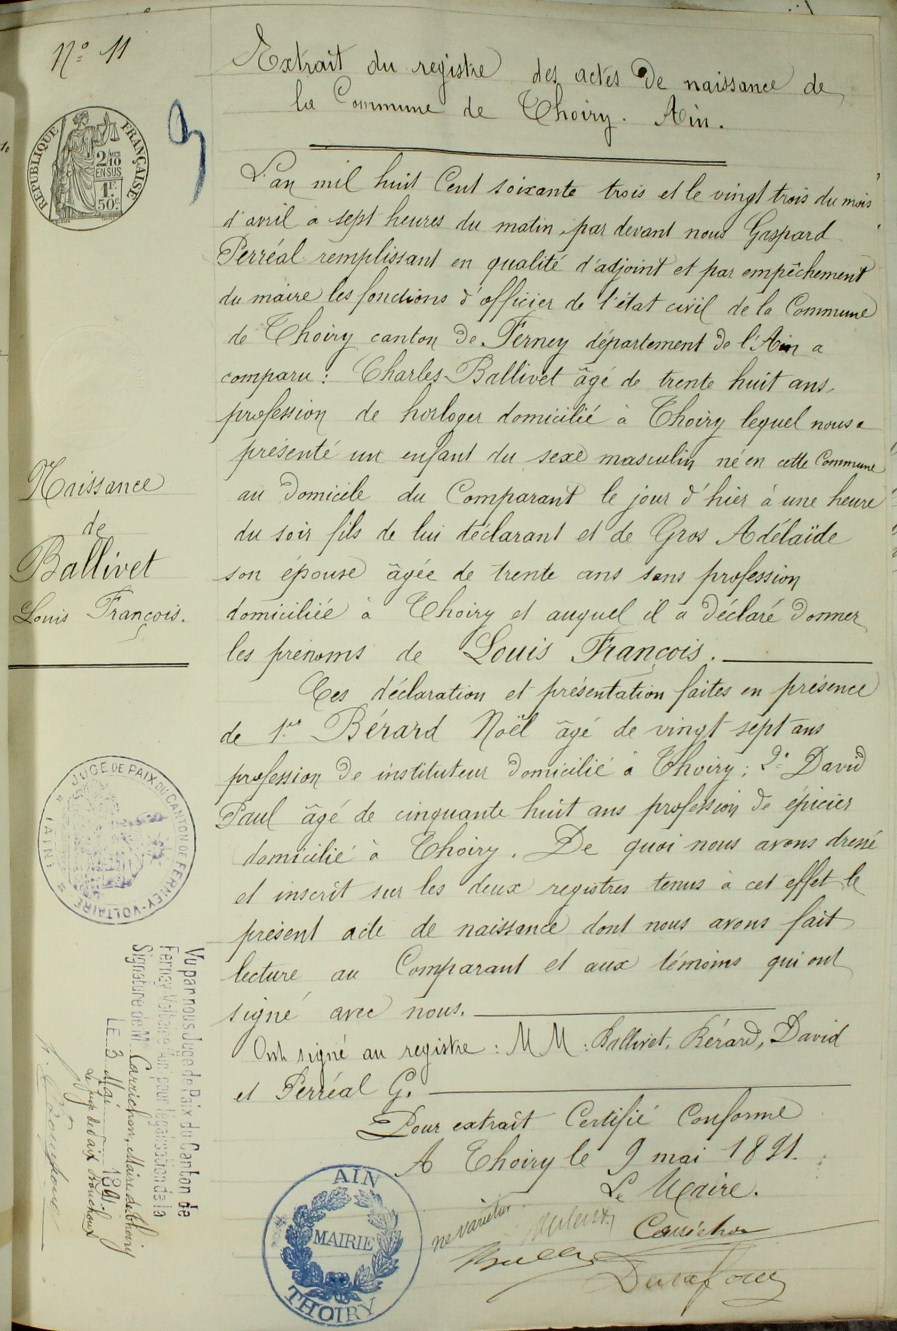 N° 11
9
RÉPUBLIQUE FRANÇAISE
2/10
EN SUS
1F
50c
Extrait du registre des actes de naissance de
la Commune de Thoiry. Ain.
L'an mil huit Cent soixante trois et le vingt trois du mois
d'avril à sept heures du matin par devant nous Gaspard
Perréal remplissant en qualité d'adjoint et par empêchement
du maire les fonctions d'officier de l'état civil de la Commune
de Thoiry canton de Ferney département de l'Ain a
comparu : Charles Ballivet âgé de trente huit ans
profession de horloger domicilié à Thoiry lequel nous a
présenté un enfant du sexe masculin né en cette Commune
au domicile du Comparant le jour d'hier à une heure
du soir fils de lui déclarant et de Gros Adélaïde
son épouse âgée de trente ans sans profession
domiciliée à Thoiry et auquel il a déclaré donner
les prénoms de Louis François.
Naissance
de
Ballivet
Louis François.
Ces déclaration et présentation faites en présence
de 1er Bérard Noël âgé de vingt sept ans
profession de instituteur domicilié à Thoiry ; 2° David
Paul âgé de cinquante huit ans profession de épicier
domicilié à Thoiry. De quoi nous avons dressé
et inscrit sur les deux registres tenus à cet effet le
présent acte de naissance dont nous avons fait
lecture au Comparant et aux témoins qui ont
signé avec nous.
Ont signé au registre : MM : Ballivet, Bérard, David
et Perréal G.
Pour extrait Certifié Conforme
A Thoiry le 9 mai 1891.
Le Maire.
Carrichon
ne varietur
JUGE DE PAIX DU CANTON DE FERNEY-VOLTAIRE
(AIN)
Vu par nous Juge de Paix du Canton de
Ferney-Voltaire Ain pour légalisation de la
Signature de M. Carrichon, Maire de Thoiry
LE 9 Mai 1891
Le juge de Paix
AIN
MAIRIE
THOIRY